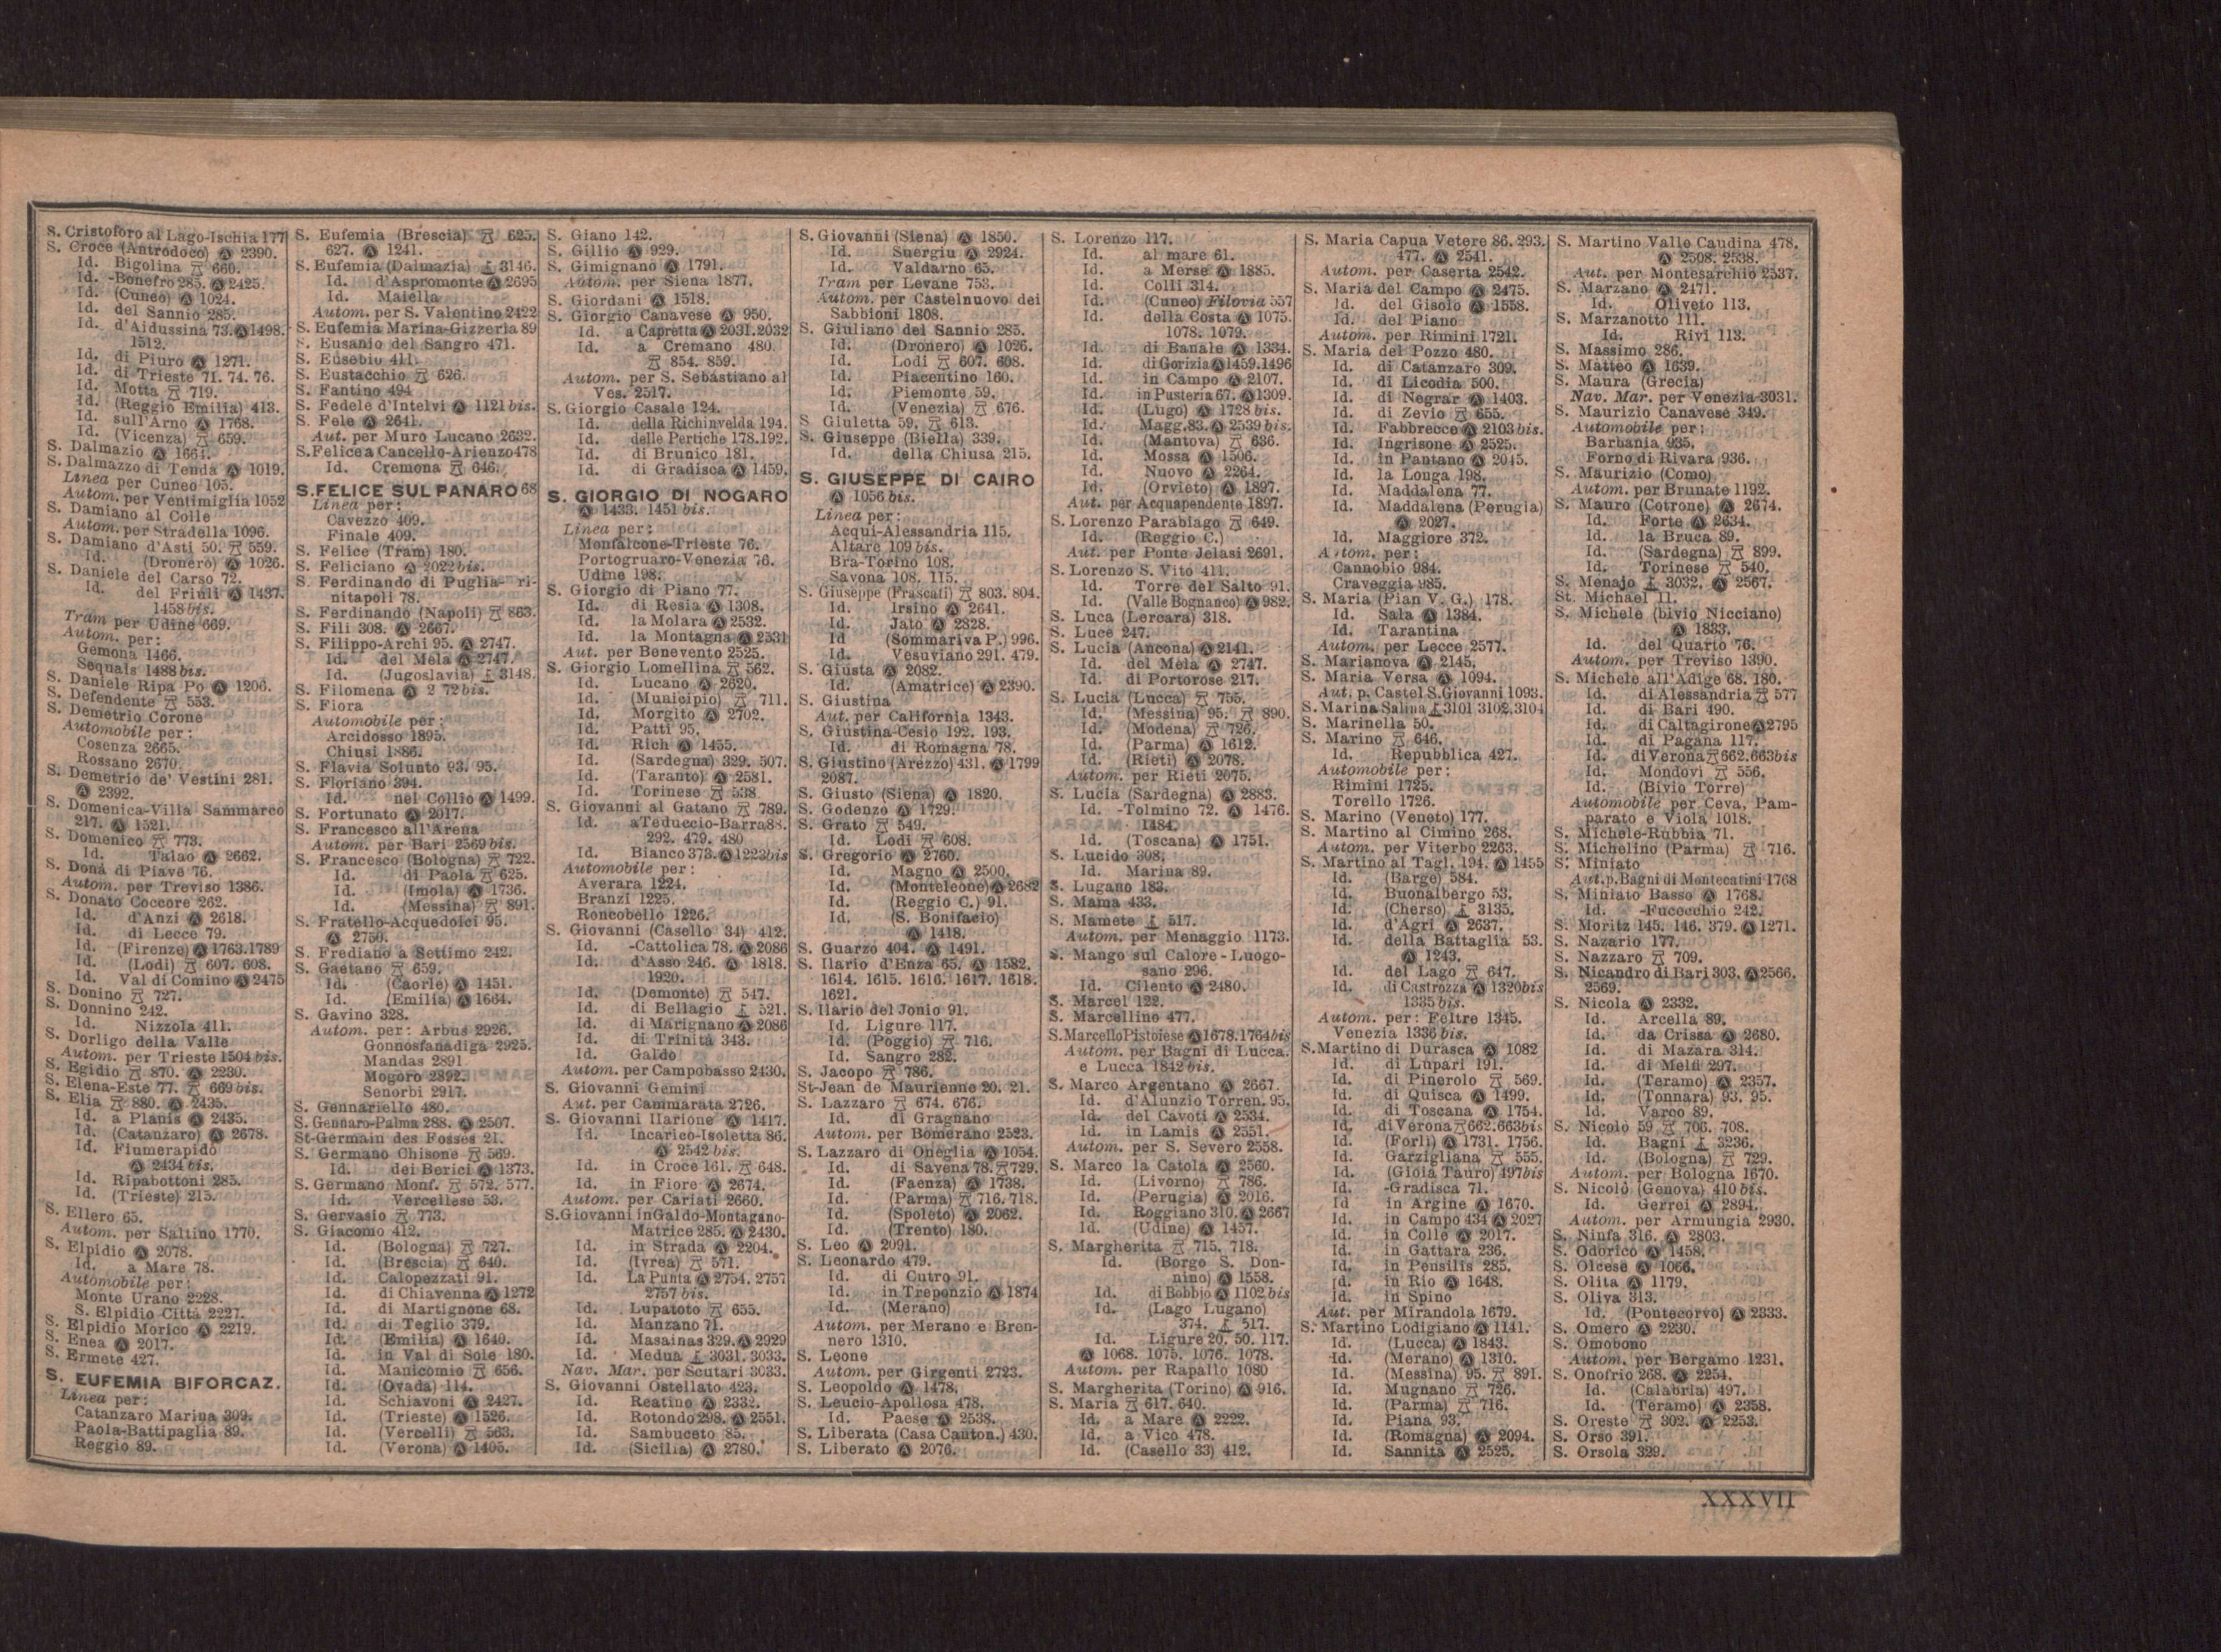 S. Cristoforo al Lago-Ischia 177
S. Croce (Antrodoco) Ⓐ 2390.
Id. Bigolina 660.
Id. -Bonefro 285. Ⓐ 2425.
Id. (Cuneo) Ⓐ 1024.
Id. del Sannio 285.
Id. d'Aidussina 73. Ⓐ 1498.
1512.
Id. di Piuro Ⓐ 1271.
Id. di Trieste 71. 74. 76.
Id. Motta 719.
Id. (Reggio Emilia) 413.
Id. sull'Arno Ⓐ 1768.
Id. (Vicenza) 659.
S. Dalmazio Ⓐ 1661.
S. Dalmazzo di Tenda Ⓐ 1019.
Linea per Cuneo 105.
Autom. per Ventimiglia 1052
S. Damiano al Colle
Autom. per Stradella 1096.
S. Damiano d'Asti 50. 559.
Id. (Dronero) Ⓐ 1026.
S. Daniele del Carso 72.
Id. del Friuli Ⓐ 1437.
1458 bis.
Tram per Udine 669.
Autom. per:
Gemona 1466.
Sequals 1488 bis.
S. Daniele Ripa Po Ⓐ 1206.
S. Defendente 553.
S. Demetrio Corone
Automobile per:
Cosenza 2665.
Rossano 2670.
S. Demetrio de' Vestini 281.
Ⓐ 2392.
S. Domenica-Villa Sammarco
217. Ⓐ 1521.
S. Domenico 773.
Id. Talao Ⓐ 2662.
S. Donà di Piave 76.
Autom. per Treviso 1386.
S. Donato Coccore 262.
Id. d'Anzi Ⓐ 2618.
Id. di Lecce 79.
Id. (Firenze) Ⓐ 1763.1789
Id. (Lodi) 607. 608.
Id. Val di Comino Ⓐ 2475
S. Donino 727.
S. Donnino 242.
Id. Nizzola 411.
S. Dorligo della Valle
Autom. per Trieste 1504 bis.
S. Egidio 870. Ⓐ 2230.
S. Elena-Este 77. 669 bis.
S. Elia 880. Ⓐ 2435.
Id. a Planis Ⓐ 2435.
Id. (Catanzaro) Ⓐ 2678.
Id. Fiumerapido
Ⓐ 2434 bis.
Id. Ripabottoni 285.
Id. (Trieste) 215.
S. Ellero 65.
Autom. per Saltino 1770.
S. Elpidio Ⓐ 2078.
Id. a Mare 78.
Automobile per:
Monte Urano 2228.
S. Elpidio Città 2227.
S. Elpidio Morico Ⓐ 2219.
S. Enea Ⓐ 2017.
S. Ermete 427.
S. EUFEMIA BIFORCAZ.
Linea per:
Catanzaro Marina 309.
Paola-Battipaglia 89.
Reggio 89.
S. Eufemia (Brescia) 625.
627. Ⓐ 1241.
S. Eufemia (Dalmazia) 3146.
Id. d'Aspromonte Ⓐ 2695
Id. Maiella
Autom. per S. Valentino 2422
S. Eufemia Marina-Gizzeria 89
S. Eusanio del Sangro 471.
S. Eusebio 411.
S. Eustacchio 626.
S. Fantino 494
S. Fedele d'Intelvi Ⓐ 1121 bis.
S. Fele Ⓐ 2641.
Aut. per Muro Lucano 2632.
S. Felice a Cancello-Arienzo 478
Id. Cremona 646.
S. FELICE SUL PANARO 68
Linea per:
Cavezzo 409.
Finale 409.
S. Felice (Tram) 180.
S. Feliciano Ⓐ 2022 bis.
S. Ferdinando di Puglia- ri-
nitapoli 78.
S. Ferdinando (Napoli) 863.
S. Fili 308. Ⓐ 2667.
S. Filippo-Archi 95. Ⓐ 2747.
Id. del Mela Ⓐ 2747.
Id. (Jugoslavia) 3148.
S. Filomena Ⓐ 2 72 bis.
S. Fiora
Automobile per:
Arcidosso 1895.
Chiusi 1886.
S. Flavia Solunto 93. 95.
S. Floriano 394.
Id. nel Collio Ⓐ 1499.
S. Fortunato Ⓐ 2017.
S. Francesco all'Arena
Autom. per Bari 2569 bis.
S. Francesco (Bologna) 722.
Id. di Paola 625.
Id. (Imola) Ⓐ 1736.
Id. (Messina) 891.
S. Fratello-Acquedolci 95.
Ⓐ 2750.
S. Frediano a Settimo 242.
S. Gaetano 659.
Id. (Caorle) Ⓐ 1451.
Id. (Emilia) Ⓐ 1664.
S. Gavino 328.
Autom. per: Arbus 2926.
Gonnosfanadiga 2925.
Mandas 2891
Mogoro 2892.
Senorbi 2917.
S. Gennariello 480.
S. Gennaro-Palma 288. Ⓐ 2507.
St-Germain des Fosses 21.
S. Germano Chisone 569.
Id. dei Berici Ⓐ 1373.
S. Germano Monf. 572. 577.
Id. Vercellese 53.
S. Gervasio 773.
S. Giacomo 412.
Id. (Bologna) 727.
Id. (Brescia) 640.
Id. Calopezzati 91.
Id. di Chiavenna Ⓐ 1272
Id. di Martignone 68.
Id. di Teglio 379.
Id. (Emilia) Ⓐ 1640.
Id. in Val di Sole 180.
Id. Manicomio 656.
Id. (Ovada) 114.
Id. Schiavoni Ⓐ 2427.
Id. (Trieste) Ⓐ 1526.
Id. (Vercelli) 563.
Id. (Verona) Ⓐ 1405.
S. Giano 142.
S. Gillio Ⓐ 929.
S. Gimignano Ⓐ 1791.
Autom. per Siena 1877.
S. Giordani Ⓐ 1518.
S. Giorgio Canavese Ⓐ 950.
Id. a Capretta Ⓐ 2031.2032
Id. a Cremano 480.
854. 859.
Autom. per S. Sebastiano al
Ves. 2517.
S. Giorgio Casale 124.
Id. della Richinvelda 194.
Id. delle Pertiche 178.192.
Id. di Brunico 181.
Id. di Gradisca Ⓐ 1459.
S. GIORGIO DI NOGARO
Ⓐ 1433. 1451 bis.
Linea per:
Monfalcone-Trieste 76.
Portogruaro-Venezia 76.
Udine 198.
S. Giorgio di Piano 77.
Id. di Resia Ⓐ 1308.
Id. la Molara Ⓐ 2532.
Id. la Montagna Ⓐ 2531
Aut. per Benevento 2525.
S. Giorgio Lomellina 562.
Id. Lucano Ⓐ 2620.
Id. (Municipio) 711.
Id. Morgito Ⓐ 2702.
Id. Patti 95.
Id. Rich Ⓐ 1455.
Id. (Sardegna) 329. 507.
Id. (Taranto) Ⓐ 2581.
Id. Torinese 538
S. Giovanni al Gatano 789.
Id. a Teduccio-Barra 88.
292. 479. 480
Id. Bianco 373. Ⓐ 1223 bis
Automobile per:
Averara 1224.
Branzi 1225.
Roncobello 1226.
S. Giovanni (Casello 34) 412.
Id. -Cattolica 78. Ⓐ 2086
Id. d'Asso 246. Ⓐ 1818.
1920.
Id. (Demonte) 547.
Id. di Bellagio 521.
Id. di Marignano Ⓐ 2086
Id. di Trinità 343.
Id. Galdo
Autom. per Campobasso 2430.
S. Giovanni Gemini
Aut. per Cammarata 2726.
S. Giovanni Ilarione Ⓐ 1417.
Id. Incarico-Isoletta 86.
Ⓐ 2542 bis.
Id. in Croce 161. 648.
Id. in Fiore Ⓐ 2674.
Autom. per Cariati 2660.
S. Giovanni in Galdo-Montagano-
Matrice 285. Ⓐ 2430.
Id. in Strada Ⓐ 2204.
Id. (Ivrea) 571.
Id. La Punta Ⓐ 2754. 2757
2757 bis.
Id. Lupatoto 655.
Id. Manzano 71.
Id. Masainas 329. Ⓐ 2929
Id. Medua 3031. 3033.
Nav. Mar. per Scutari 3033.
S. Giovanni Ostellato 423.
Id. Reatino Ⓐ 2332.
Id. Rotondo 298. Ⓐ 2551.
Id. Sambuceto 85.
Id. (Sicilia) Ⓐ 2780.
S. Giovanni (Siena) Ⓐ 1850.
Id. Suergiu Ⓐ 2924.
Id. Valdarno 65.
Tram per Levane 753.
Autom. per Castelnuovo dei
Sabbioni 1808.
S. Giuliano del Sannio 285.
Id. (Dronero) Ⓐ 1026.
Id. Lodi 607. 608.
Id. Piacentino 160.
Id. Piemonte 59.
Id. (Venezia) 676.
S Giuletta 59. 613.
S. Giuseppe (Biella) 339.
Id. della Chiusa 215.
S. GIUSEPPE DI CAIRO
Ⓐ 1056 bis.
Linea per:
Acqui-Alessandria 115.
Altare 109 bis.
Bra-Torino 108.
Savona 108. 115.
S. Giuseppe (Frascati) 803. 804.
Id. Irsino Ⓐ 2641.
Id. Jato Ⓐ 2828.
Id (Sommariva P.) 996.
Id. Vesuviano 291. 479.
S. Giusta Ⓐ 2082.
Id. (Amatrice) Ⓐ 2390.
S. Giustina
Aut. per California 1343.
S. Giustina-Cesio 192. 193.
Id. di Romagna 78.
S. Giustino (Arezzo) 431. Ⓐ 1799
2087.
S. Giusto (Siena) Ⓐ 1820.
S. Godenzo Ⓐ 1729.
S. Grato 549.
Id. Lodi 608.
S. Gregorio Ⓐ 2760.
Id. Magno Ⓐ 2500.
Id. (Monteleone) Ⓐ 2682
Id. (Reggio C.) 91.
Id. (S. Bonifacio)
Ⓐ 1418.
S. Guarzo 404. Ⓐ 1491.
S. Ilario d'Enza 65. Ⓐ 1582.
1614. 1615. 1616. 1617. 1618.
1621.
S. Ilario del Jonio 91.
Id. Ligure 117.
Id. (Poggio) 716.
Id. Sangro 282.
S. Jacopo 786.
St-Jean de Maurienne 20. 21.
S. Lazzaro 674. 676.
Id. di Gragnano
Autom. per Bomerano 2523.
S. Lazzaro di Oneglia Ⓐ 1054.
Id. di Savena 78. 729.
Id. (Faenza) Ⓐ 1738.
Id. (Parma) 716. 718.
Id. (Spoleto) Ⓐ 2062.
Id. (Trento) 180.
S. Leo Ⓐ 2091.
S. Leonardo 479.
Id. di Cutro 91.
Id. in Treponzio Ⓐ 1874
Id. (Merano)
Autom. per Merano e Bren-
nero 1310.
S. Leone
Autom. per Girgenti 2723.
S. Leopoldo Ⓐ 1478.
S. Leucio-Apollosa 478.
Id. Paese Ⓐ 2538.
S. Liberata (Casa Canton.) 430.
S. Liberato Ⓐ 2076.
S. Lorenzo 117.
Id. al mare 61.
Id. a Merse Ⓐ 1885.
Id. Colli 314.
Id. (Cuneo) Filovia 557
Id. della Costa Ⓐ 1075.
1078. 1079.
Id. di Banale Ⓐ 1334.
Id. di Gorizia Ⓐ 1459.1496
Id. in Campo Ⓐ 2107.
Id. in Pusteria 67. Ⓐ 1309.
Id. (Lugo) Ⓐ 1728 bis.
Id. Magg. 83. Ⓐ 2539 bis.
Id. (Mantova) 636.
Id. Mossa Ⓐ 1506.
Id. Nuovo Ⓐ 2264.
Id. (Orvieto) Ⓐ 1897.
Aut. per Acquapendente 1897.
S. Lorenzo Parabiago 649.
Id. (Reggio C.)
Aut. per Ponte Jelasi 2691.
S. Lorenzo S. Vito 411.
Id. Torre del Salto 91.
Id. (Valle Bognanco) Ⓐ 982.
S. Luca (Lercara) 318.
S. Luce 247.
S. Lucia (Ancona) Ⓐ 2141.
Id. del Mela Ⓐ 2747.
Id. di Portorose 217.
S. Lucia (Lucca) 755.
Id. (Messina) 95. 890.
Id. (Modena) 726.
Id. (Parma) Ⓐ 1612.
Id. (Rieti) Ⓐ 2078.
Autom. per Rieti 2075.
S. Lucia (Sardegna) Ⓐ 2883.
Id. -Tolmino 72. Ⓐ 1476.
1484.
Id. (Toscana) Ⓐ 1751.
S. Lucido 308.
Id. Marina 89.
S. Lugano 183.
S. Mama 433.
S. Mamete 517.
Autom. per Menaggio 1173.
S. Mango sul Calore - Luogo-
sano 296.
Id. Cilento Ⓐ 2480.
S. Marcel 122.
S. Marcellino 477.
S. Marcello Pistoiese Ⓐ 1678.1764 bis
Autom. per Bagni di Lucca.
e Lucca 1842 bis.
S. Marco Argentano Ⓐ 2667.
Id. d'Alunzio Torren. 95.
Id. del Cavoti Ⓐ 2534.
Id. in Lamis Ⓐ 2551.
Autom. per S. Severo 2558.
S. Marco la Catola Ⓐ 2560.
Id. (Livorno) 786.
Id. (Perugia) Ⓐ 2016.
Id. Roggiano 310. Ⓐ 2667
Id. (Udine) Ⓐ 1457.
S. Margherita 715. 718.
Id. (Borgo S. Don-
nino) Ⓐ 1558.
Id. di Bobbio Ⓐ 1102 bis
Id. (Lago Lugano)
374. 517.
Id. Ligure 20. 50. 117.
Ⓐ 1068. 1075. 1076. 1078.
Autom. per Rapallo 1080
S. Margherita (Torino) Ⓐ 916.
S. Maria 617. 640.
Id. a Mare Ⓐ 2222.
Id. a Vico 478.
Id. (Casello 33) 412.
S. Maria Capua Vetere 86. 293.
477. Ⓐ 2541.
Autom. per Caserta 2542.
S. Maria del Campo Ⓐ 2475.
Id. del Gisolo Ⓐ 1558.
Id. del Piano
Autom. per Rimini 1721.
S. Maria del Pozzo 480.
Id. di Catanzaro 309.
Id. di Licodia 500.
Id. di Negrar Ⓐ 1403.
Id. di Zevio 655.
Id. Fabbrecce Ⓐ 2103 bis.
Id. Ingrisone Ⓐ 2525.
Id. in Pantano Ⓐ 2045.
Id. la Longa 198.
Id. Maddalena 77.
Id. Maddalena (Perugia)
Ⓐ 2027.
Id. Maggiore 372.
A tom. per:
Cannobio 984.
Craveggia 985.
S. Maria (Pian V. G.) 178.
Id. Sala Ⓐ 1384.
Id. Tarantina
Autom. per Lecce 2577.
S. Marianova Ⓐ 2145.
S. Maria Versa Ⓐ 1094.
Aut. p. Castel S. Giovanni 1093.
S. Marina Salina 3101 3102.3104
S. Marinella 50.
S. Marino 646.
Id. Repubblica 427.
Automobile per:
Rimini 1725.
Torello 1726.
S. Marino (Veneto) 177.
S. Martino al Cimino 268.
Autom. per Viterbo 2263.
S. Martino al Tagl. 194. Ⓐ 1455
Id. (Barge) 584.
Id. Buonalbergo 53.
Id. (Cherso) 3135.
Id. d'Agri Ⓐ 2637.
Id. della Battaglia 53.
Ⓐ 1243.
Id. del Lago 647.
Id. di Castrozza Ⓐ 1320 bis
1335 bis.
Autom. per: Feltre 1345.
Venezia 1336 bis.
S. Martino di Durasca Ⓐ 1082
Id. di Lupari 191.
Id. di Pinerolo 569.
Id. di Quisca Ⓐ 1499.
Id. di Toscana Ⓐ 1754.
Id. di Verona 662.663 bis
Id. (Forlì) Ⓐ 1731. 1756.
Id. Garzigliana 555.
Id. (Gioia Tauro) 497 bis
Id. -Gradisca 71.
Id in Argine Ⓐ 1670.
Id. in Campo 434 Ⓐ 2027
Id. in Colle Ⓐ 2017.
Id. in Gattara 236.
Id. in Pensilis 285.
Id. in Rio Ⓐ 1648.
Id. in Spino
Aut. per Mirandola 1679.
S. Martino Lodigiano Ⓐ 1141.
Id. (Lucca) Ⓐ 1843.
Id. (Merano) Ⓐ 1310.
Id. (Messina) 95. 891.
Id. Mugnano 726.
Id. (Parma) 716.
Id. Piana 93.
Id. (Romagna) Ⓐ 2094.
Id. Sannita Ⓐ 2525.
S. Martino Valle Caudina 478.
Ⓐ 2508. 2538.
Aut. per Montesarchio 2537.
S. Marzano Ⓐ 2471.
Id. Oliveto 113.
S. Marzanotto 111.
Id. Rivi 113.
S. Massimo 286.
S. Matteo Ⓐ 1639.
S. Maura (Grecia)
Nav. Mar. per Venezia 3031.
S. Maurizio Canavese 349.
Automobile per:
Barbania 935.
Forno di Rivara 936.
S. Maurizio (Como)
Autom. per Brunate 1192.
S. Mauro (Cotrone) Ⓐ 2674.
Id. Forte Ⓐ 2634.
Id. la Bruca 89.
Id. (Sardegna) 899.
Id. Torinese 540.
S. Menajo 3032. Ⓐ 2567.
St. Michael 11.
S. Michele (bivio Nicciano)
Ⓐ 1833.
Id. del Quarto 76.
Autom. per Treviso 1390.
S. Michele all'Adige 68. 180.
Id. di Alessandria 577
Id. di Bari 490.
Id. di Caltagirone Ⓐ 2795
Id. di Pagana 117.
Id. di Verona 662.663 bis
Id. Mondovì 556.
Id. (Bivio Torre)
Automobile per Ceva, Pam-
parato e Viola 1018.
S. Michele-Rubbia 71.
S. Michelino (Parma) 716.
S. Miniato
Aut. p. Bagni di Montecatini 1768
S. Miniato Basso Ⓐ 1768.
Id. -Fucecchio 242.
S. Moritz 145. 146. 379. Ⓐ 1271.
S. Nazario 177.
S. Nazzaro 709.
S. Nicandro di Bari 303. Ⓐ 2566.
2569.
S. Nicola Ⓐ 2332.
Id. Arcella 89.
Id. da Crissa Ⓐ 2680.
Id. di Mazara 314.
Id. di Melfi 297.
Id. (Teramo) Ⓐ 2357.
Id. (Tonnara) 93. 95.
Id. Varco 89.
S. Nicolò 59 706. 708.
Id. Bagni 3236.
Id. (Bologna) 729.
Autom. per Bologna 1670.
S. Nicolò (Genova) 410 bis.
Id. Gerrei Ⓐ 2894.
Autom. per Armungia 2930.
S. Ninfa 316. Ⓐ 2803.
S. Odorico Ⓐ 1458.
S. Olcese Ⓐ 1066.
S. Olita Ⓐ 1179.
S. Oliva 313.
Id. (Pontecorvo) Ⓐ 2333.
S. Omero Ⓐ 2230.
S. Omobono
Autom. per Bergamo 1231.
S. Onofrio 268. Ⓐ 2254.
Id. (Calabria) 497.
Id. (Teramo) Ⓐ 2358.
S. Oreste 302. Ⓐ 2253.
S. Orso 391.
S. Orsola 329.
XXXVII